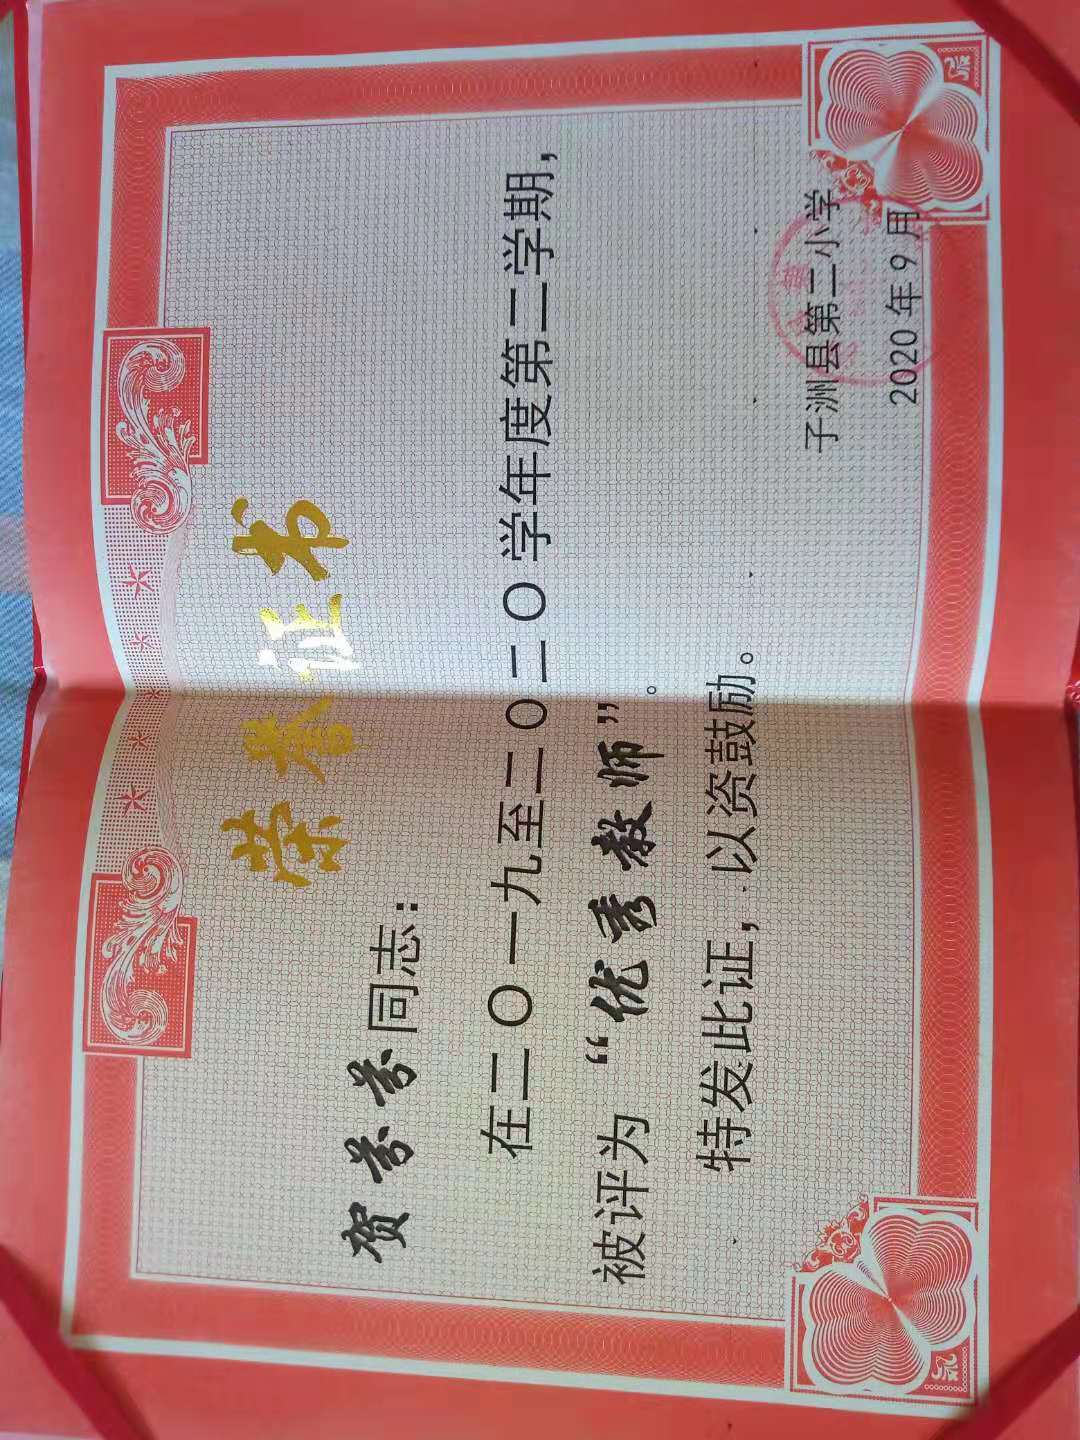 荣誉证书
贺芬芬同志：
在二〇一九至二〇二〇学年度第二学期，
被评为“优秀教师”。
特发此证，以资鼓励。
子洲县第二小学
2020年9月